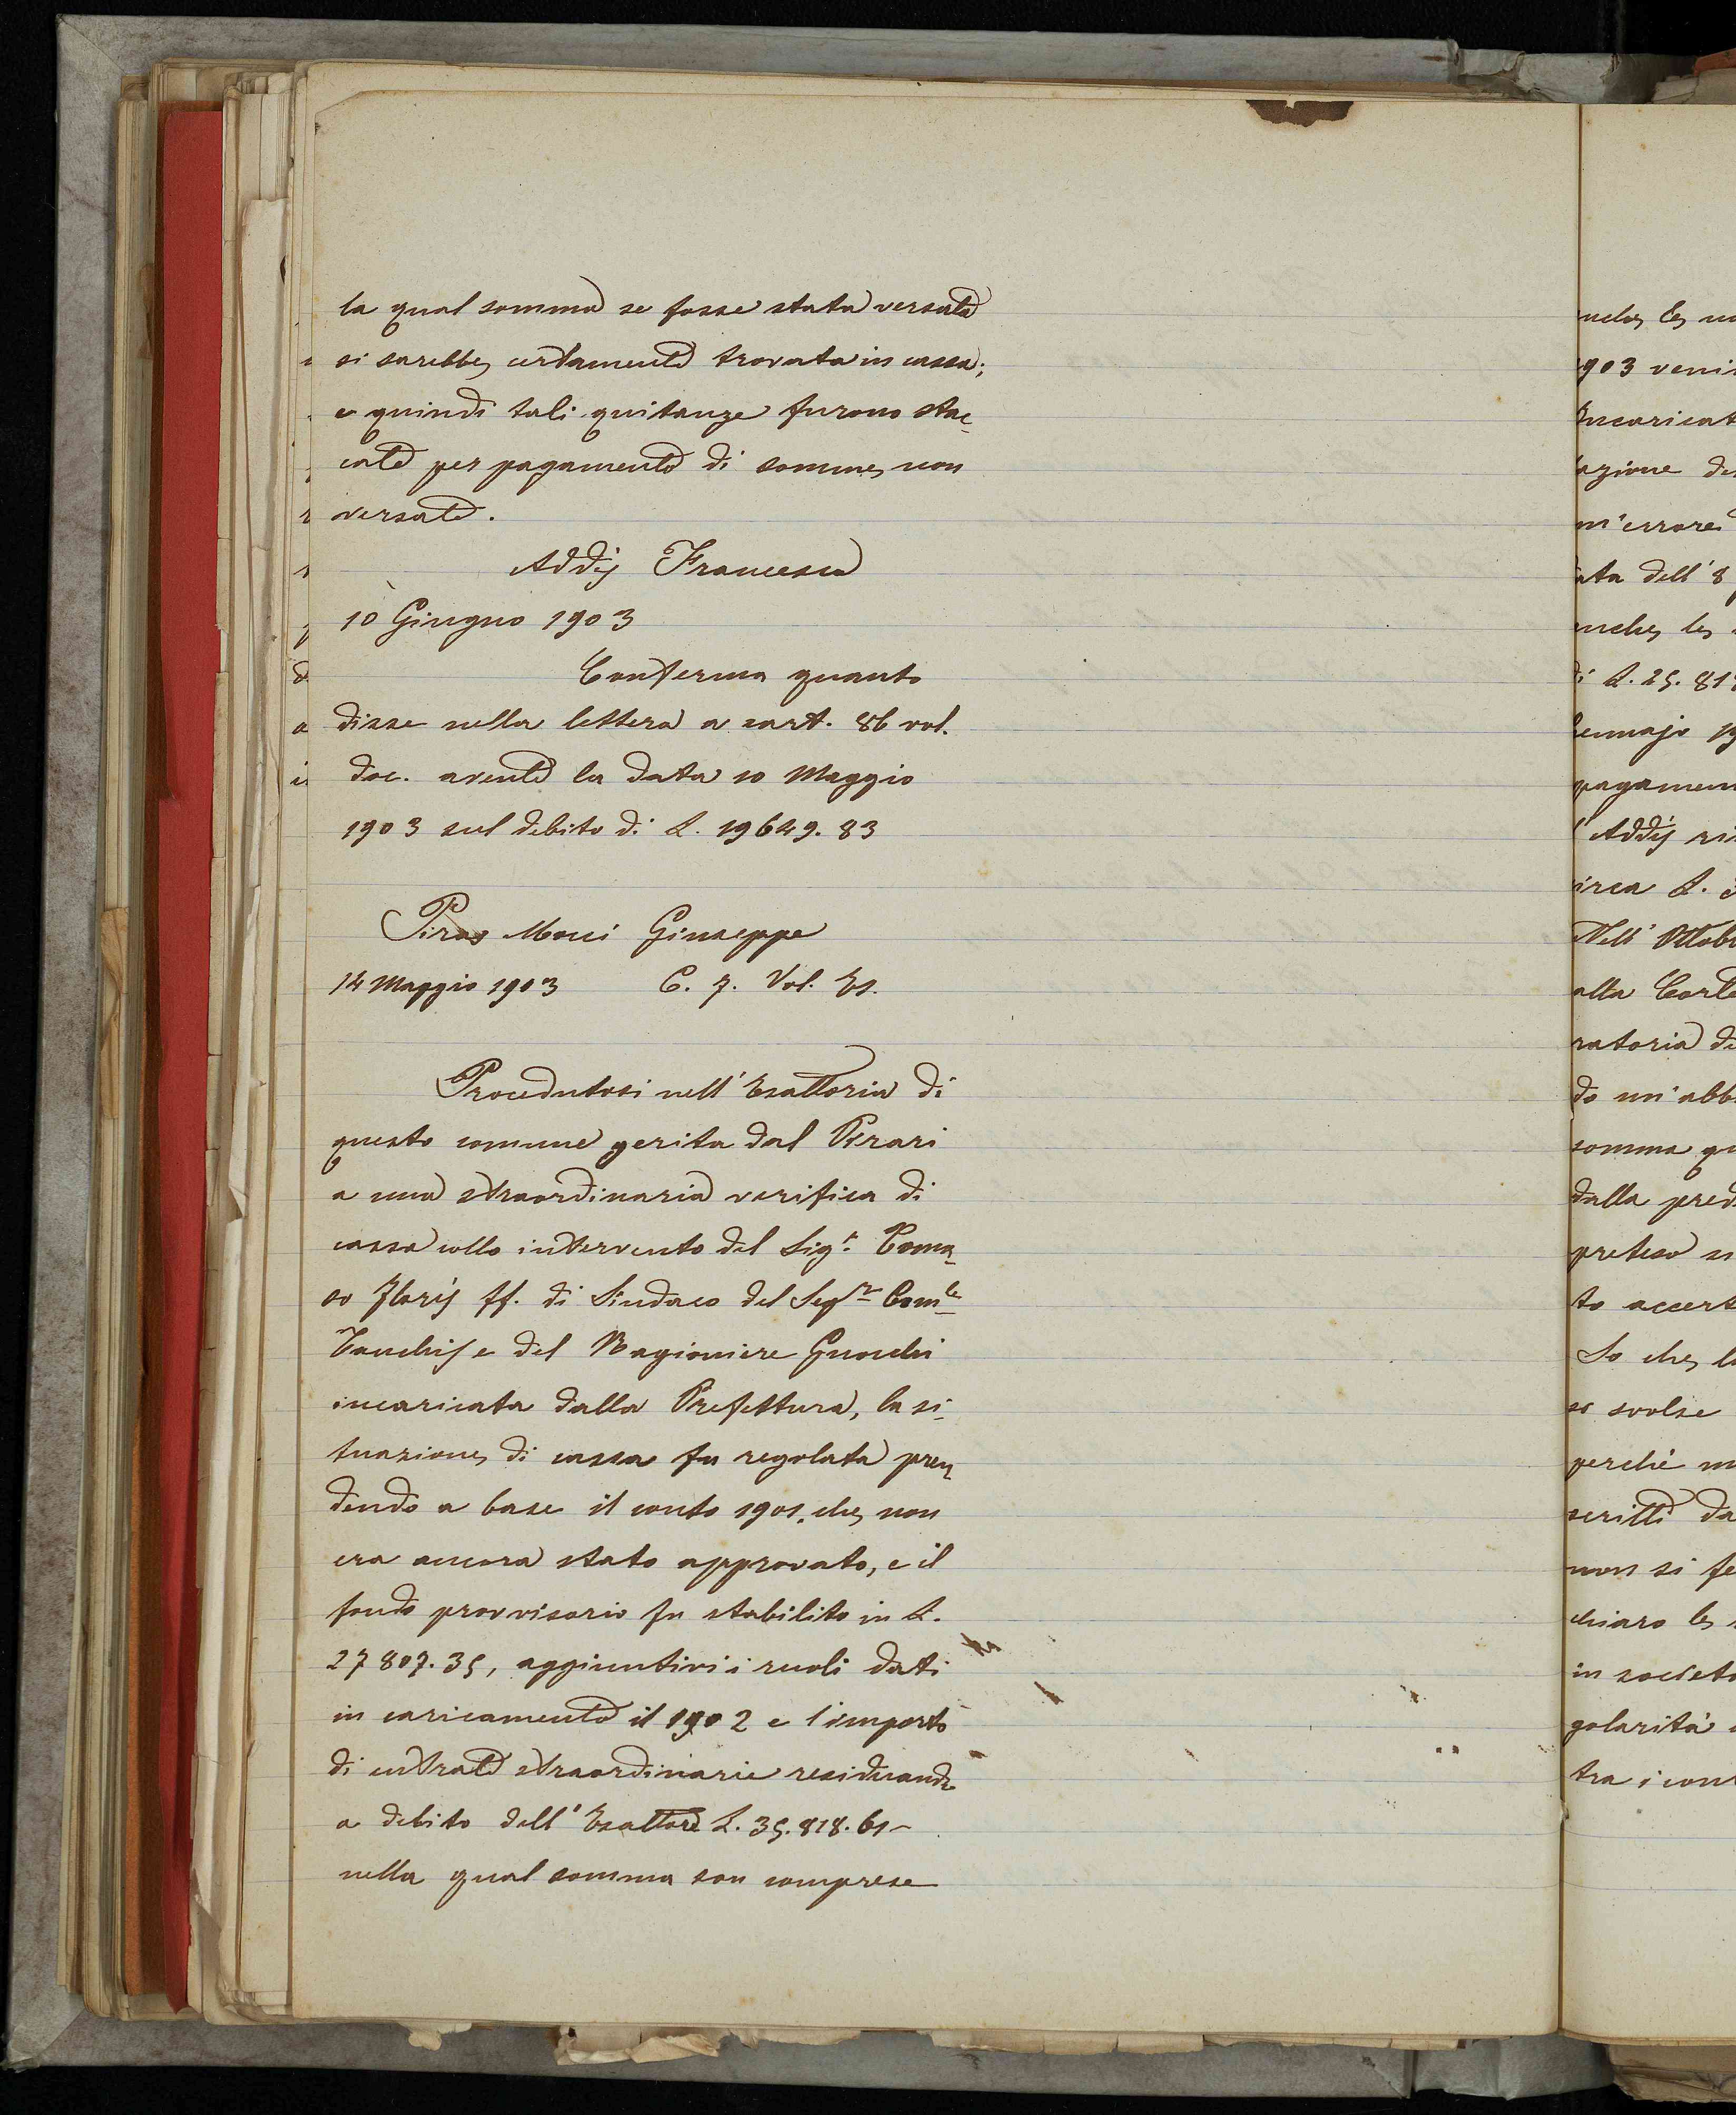 la qual somma se fosse stata versata
si sarebbe certamente trovata in cassa;
e quindi tali quitanze furono stac-
cate per pagamento di somme non
versate.
Addis Francesco
10 Giugno 1903
Conferma quanto
disse nella lettera a cart. 86 vol.
doc. avente la data 10 Maggio
1903 sul debito di L. 19649.83
Piras Mocci Giuseppe
14 Maggio 1903 C. 7. Vol. Es.
Procedutosi nell'Esattoria di
questo comune gerita dal Pirari
a una straordinaria verifica di
cassa collo intervento del Sigr. Toma-
so Floris ff. di Sindaco del Segrio Comle
Vanchis e del Ragioniere Gunchi
incaricata dalla Prefettura, la si-
tuazione di cassa fu regolata pren-
dendo a base il conto 1901. che non
era ancora stato approvato, e il
fondo provvisorio fu stabilito in L.
27807.35, aggiuntivi i ruoli dati
in caricamento il 1902 e l'importo
di entrate straordinarie residerando
a debito dell'Esattore L. 35.818.61-
nella qual somma son comprese
1903
Incaricat
azione de
m'errore
ata dell'8
anche le
di L. 25.81
Gennajo 19
pagamen
l'Addis ri
circa L.
Nell'Ottob
alla Corte
ratoria de
do un'abb
somma qu
dalla pred
preteso
to accert
So che l
so svolse
perchè
scritti da
non si fe
chiaro le
in società
golarità
tra i con